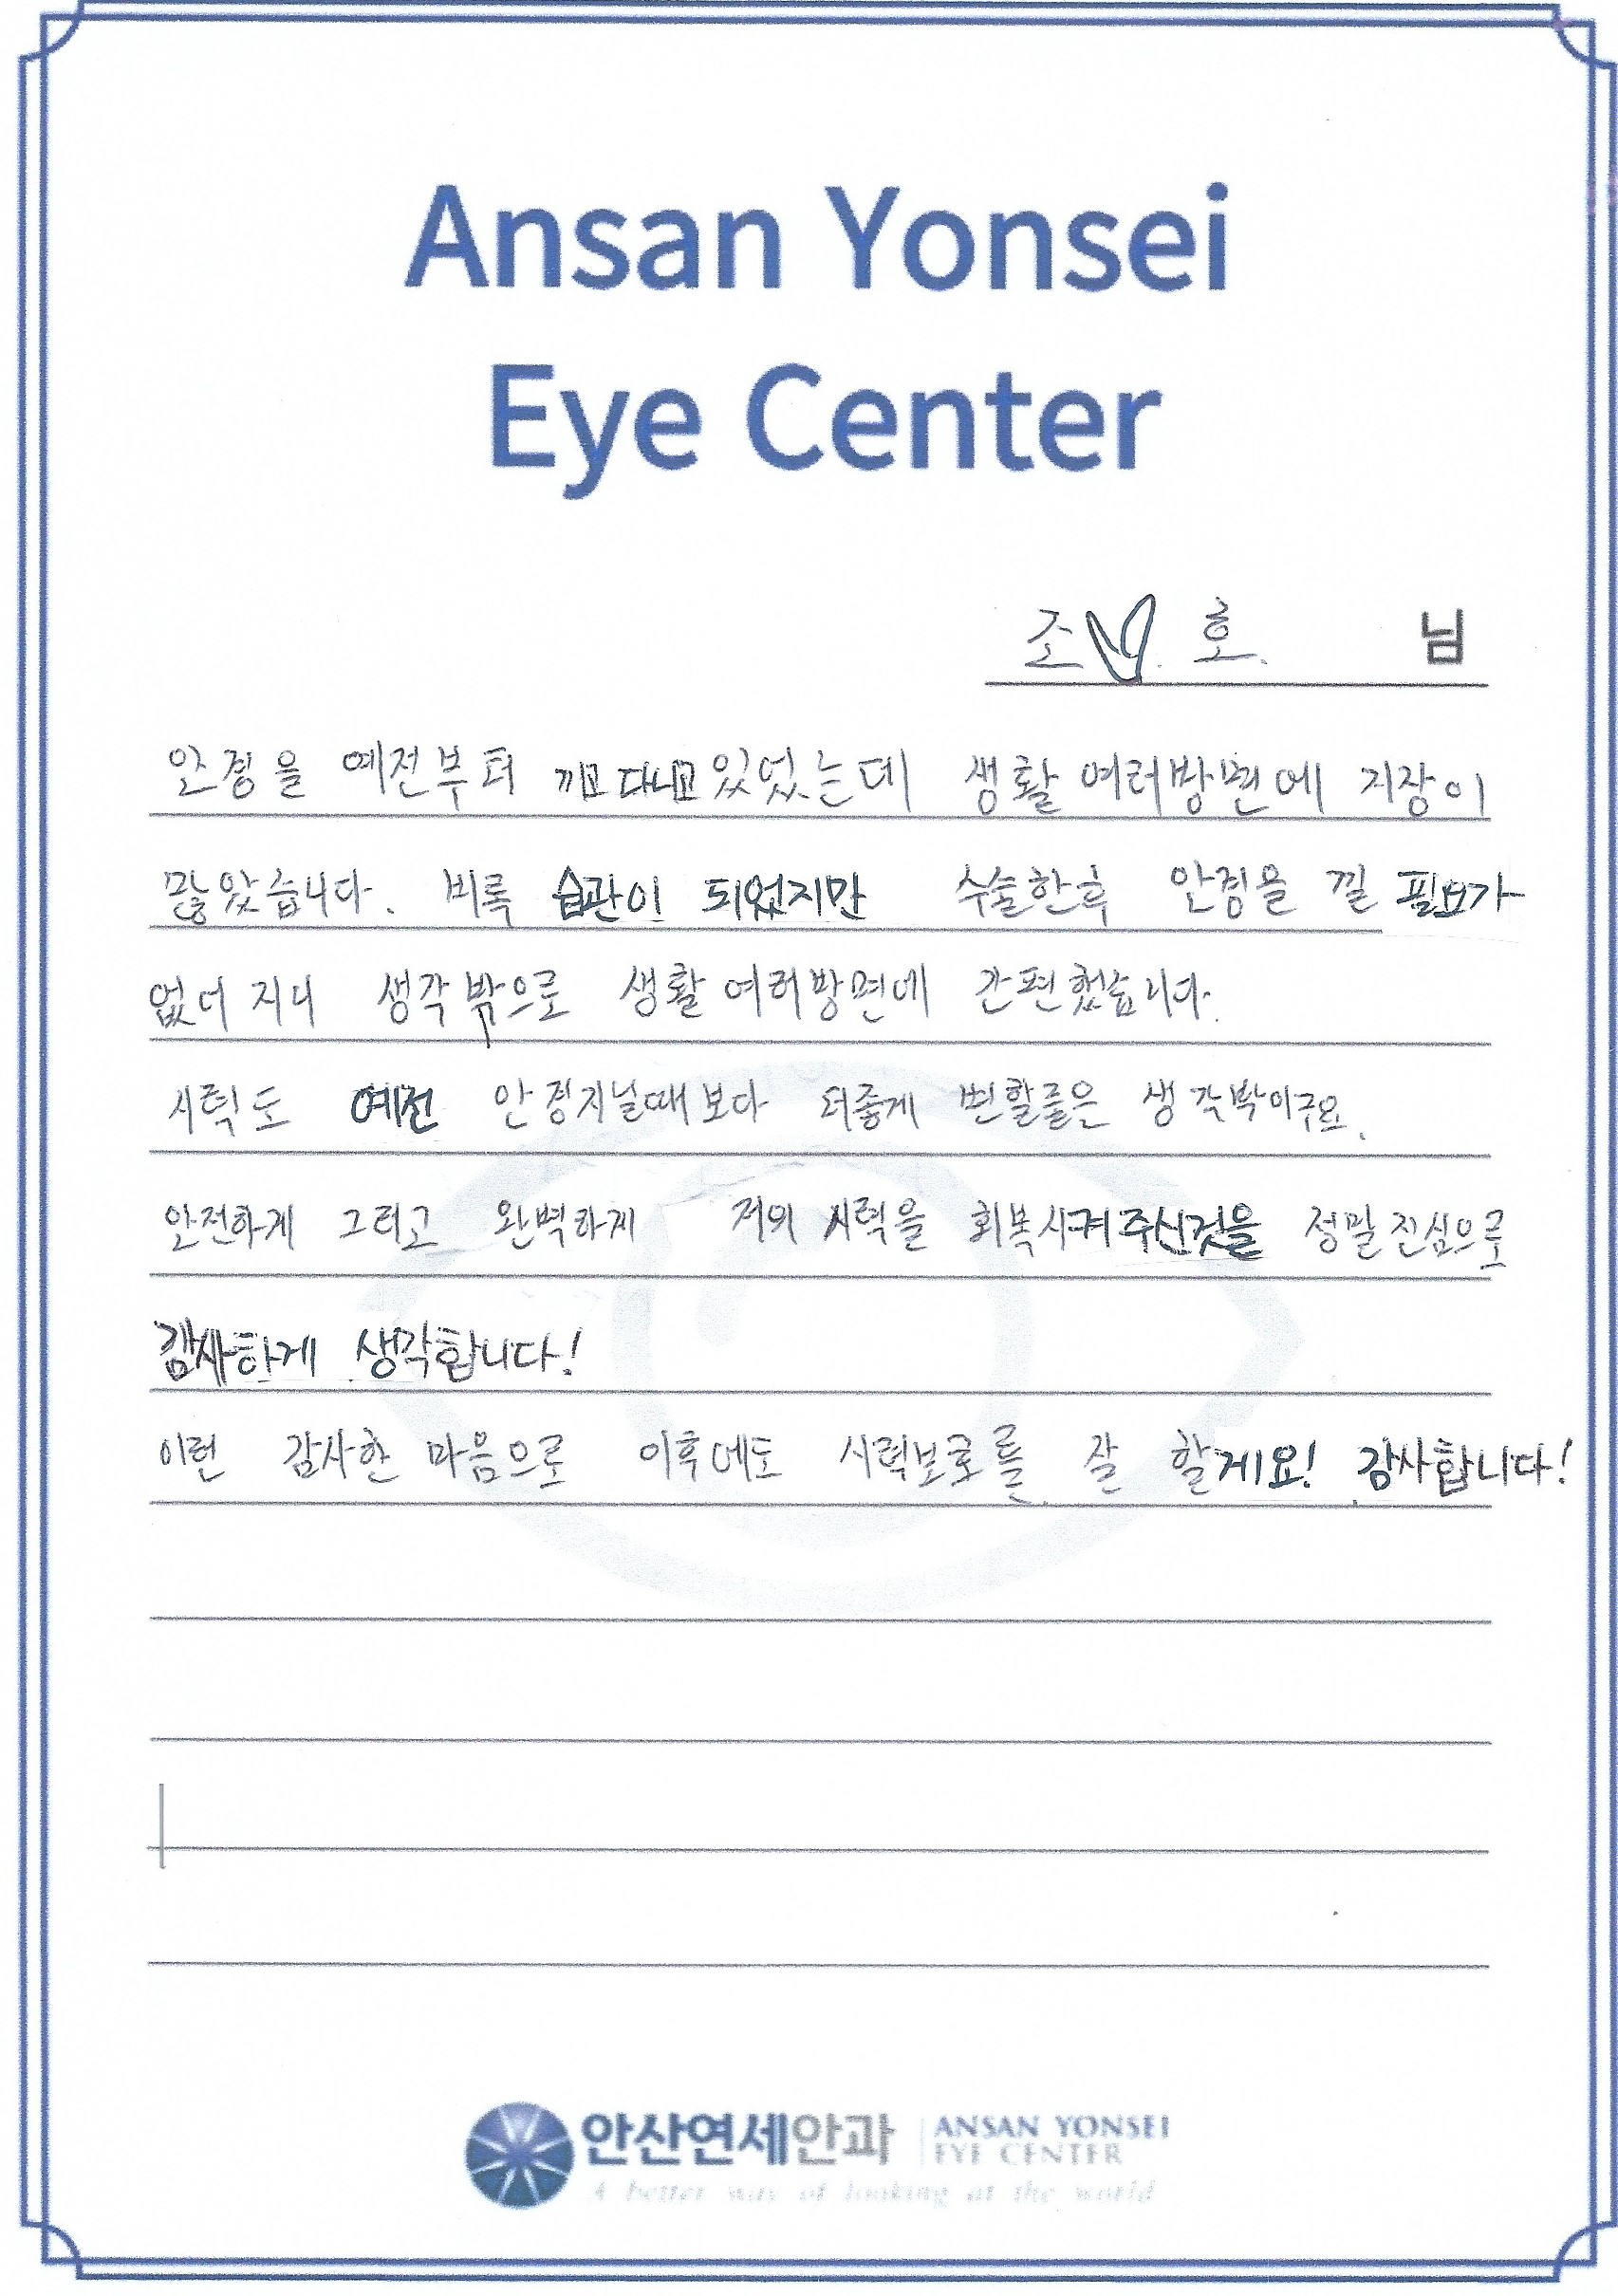 Ansan Yonsei
Eye Center
조 호 님
안경을 예전부터 끼고 다니고 있었는데 생활 여러방면에 지장이
많았습니다. 비록 습관이 되었지만 수술한후 안경을 낄 필요가
없더 지니 생각 밖으로 생활 여러방면에 간편했습니다.
시력도 예전 안경지닐때 보다 더좋게 변할줄은 생각밖이구요.
안전하게 그리고 완벽하게 저의 시력을 회복시켜주신것을 정말 진심으로
감사하게 생각합니다!
이런 감사한 마음으로 이후에도 시력보호를 잘 할게요! 감사합니다!
안산연세안과 ANSAN YONSEI
EYE CENTER
A better way of looking at the world